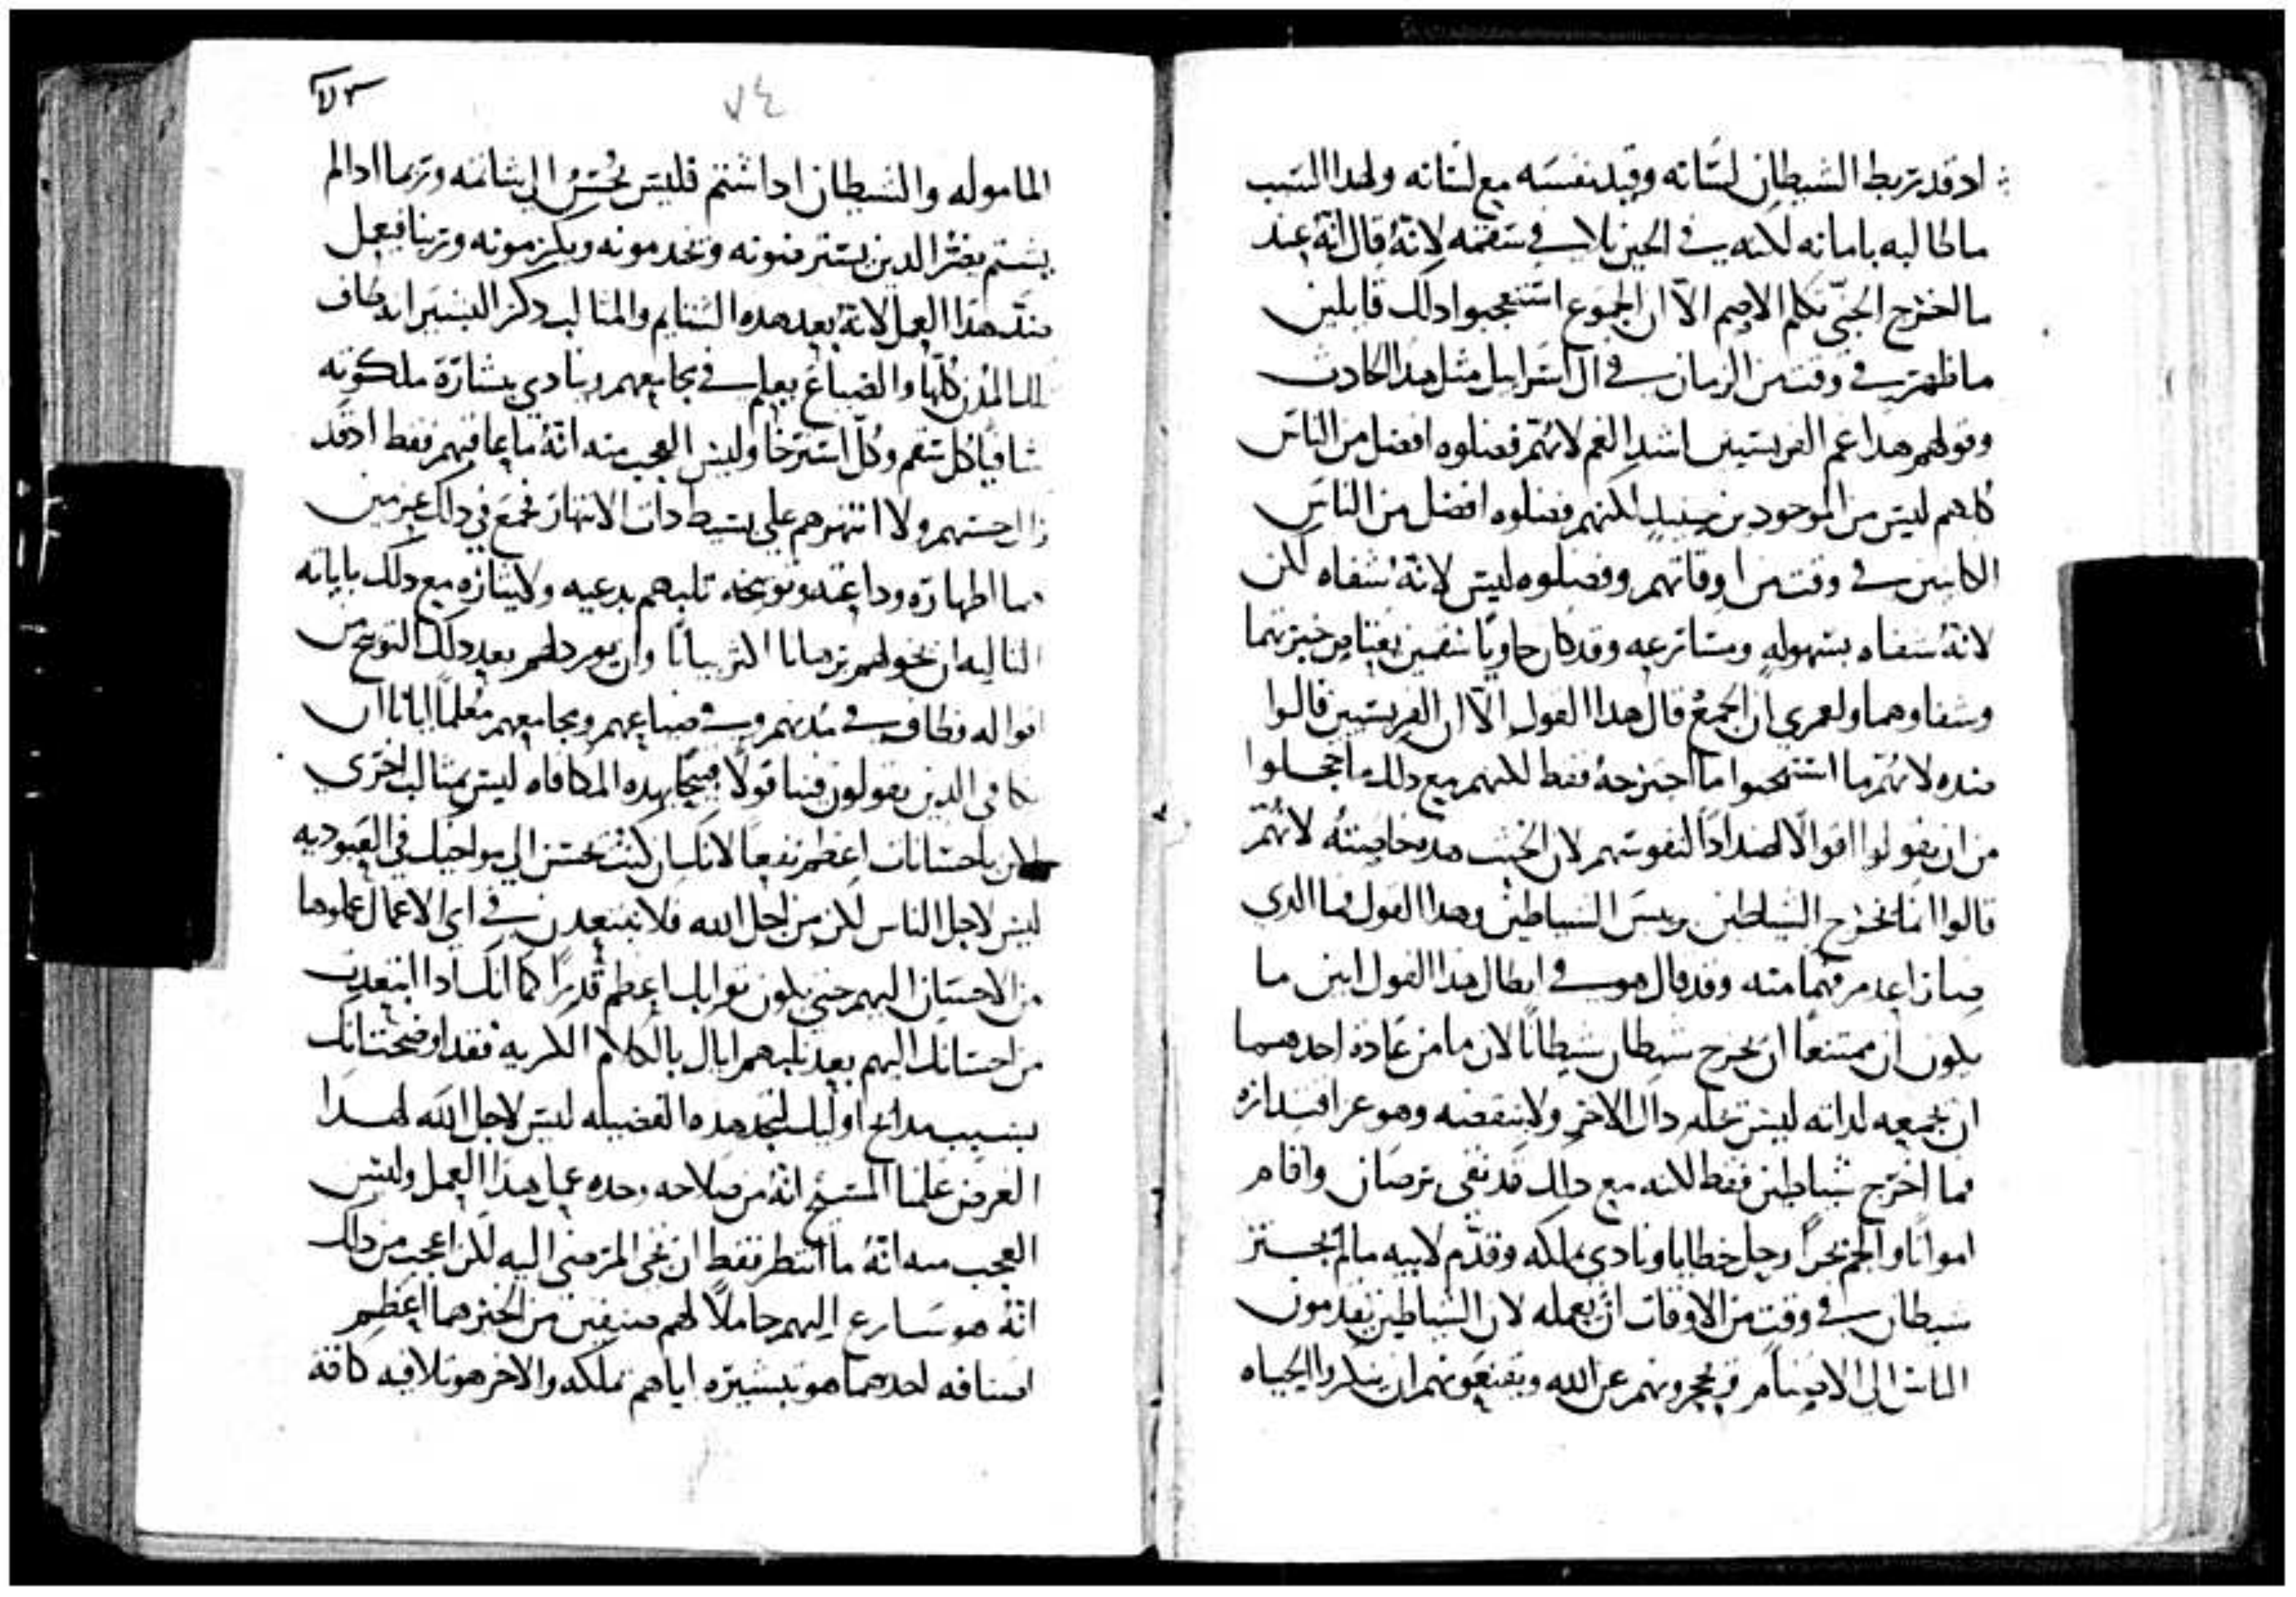 اد قد ربط الشيطان لسانه وقيد نفسه مع لسانه ولهدا السبب
ما طالبه بامانه لكنه في الحين تلافي سقمه لانهُ قال انهُ عند
ما اخرج الجني تكلم الاصم الّا ان الجموع استعجبوا دلك قايلين
ما ظهر في وقت من الزمان في ال اسراييل مثل هدا الحادث
وقولهم هدا غم الفريسيين اشد الغم لانهُم فضلوه افضل من الناس
كلهم ليس من الموجودين حينيدٍ لكنهم فضلوه افضل من الناس
الكاينين في وقت من اوقاتهم وفضلوه ليس لانهُ شفاه لكن
لانهُ شفاه بسهولهٍ ومسارعه وقد كان حاويًا سقمين
وشفاوهما ولعمري ان الجمعُ قال هدا القول الّا ان الفريسيين قالوا
ضده لانهُم ما استقبحوا ما اجترحهُ فقط لكنهم مع دلك ما خجلوا
من ان يقولوا اقوالًا اضدادًا لنفوسهم لان الخبث هده خاصيتهُ لانهُم
قالوا انما يخرج الشياطين بريس الشياطين وهدا القول فما الدي
صار اعدم فهمًا منه وقد قال هو في ابطال هدا القول اين ما
يكون ان ممتنعًا ان يخرج شيطان شيطانًا لان ما من عادة احدهما
ان يجمع لداته ليس داك الاخر ولا ينقضه وهو عز اقتداره
فما اخرج شياطين فقط لكنه مع دلك قد نقى برصان واقام
امواتًا والجم بحرًا وحل خطايا ونادي بملكه وقدّم لابيه ما لم يجسر
شيطان في وقت من الاوقات ان يعمله لان الشياطين يقدمون
الناس الي الاصنام ويحجرونهم عن الله ويقنعونهم ان ينكروا الحياه
٧٣
٧٤
الماموله والشيطان ادا شتم فليس يُحسنُ الي شاتمه وربما ادا لم
يشتم يضرُ الدين يسترفونه ويخدمونه ويكرمونه وربنا فيعمل
ضدّ هدا العمل لانهُ بعد هده الشتايم والمثالب دكر البشير انه طاف
المدن كلّها والضياع يعلم في مجامعهم وينادي ببشارة ملكوته
شافيًا كل سقم وكلّ استرخا وليس العجب منه انهُ ما عاقبهم فقط اد قد
ازال حسهم ولا انتهرهم علي بسيط دات الانتهار فجمع في دلك غرضين
هما اظهاره وداعته وتوبيخه ثلبهم بدعيه ولايثاره مع دلك باياته
التاليه ان يخولهم برهانا اكثر بيانًا وان يورد لهم بعد دلك التوبيخ من
اقواله فطاف في مدنهم وفي ضياعهم ومجامعهم مُعلمًا ايانا ان
نكافي الدين يقولون فينا قولًا قبيحًا بهده المكافاه ليس بمثالب اخري
لكن باحسانات اعظم نفعًا لانك ان كنت تحسن الي مواخيك في العبوديه
ليس لاجل الناس لكن من اجل الله فلا تبتعدن في اي الاعمال عملوها
من الاحسان اليهم حتي يكون ثوابك اعظم قدرًا كما انك ادا ابتعدت
من احسانك اليهم بعد ثلبهم اياك بالكلام الكريه فقد اوضحت انك
بسبب مدايح اوليك تجد هده الفضيله ليس لاجل الله لهدا
الغرض علمنا المسيح انهُ من صلاحه وحده عمل هدا العمل وليس
العجب منه انهُ ما انتظر فقط ان يجي المرضي اليه لكن اعجب من دلك
انهُ هو سارع اليهم حاملًا لهم صنفين من الخير هما اعظم
اصنافه احدهما هو تبشيره اياهم بملكه والاخر هو تلافيه كافة